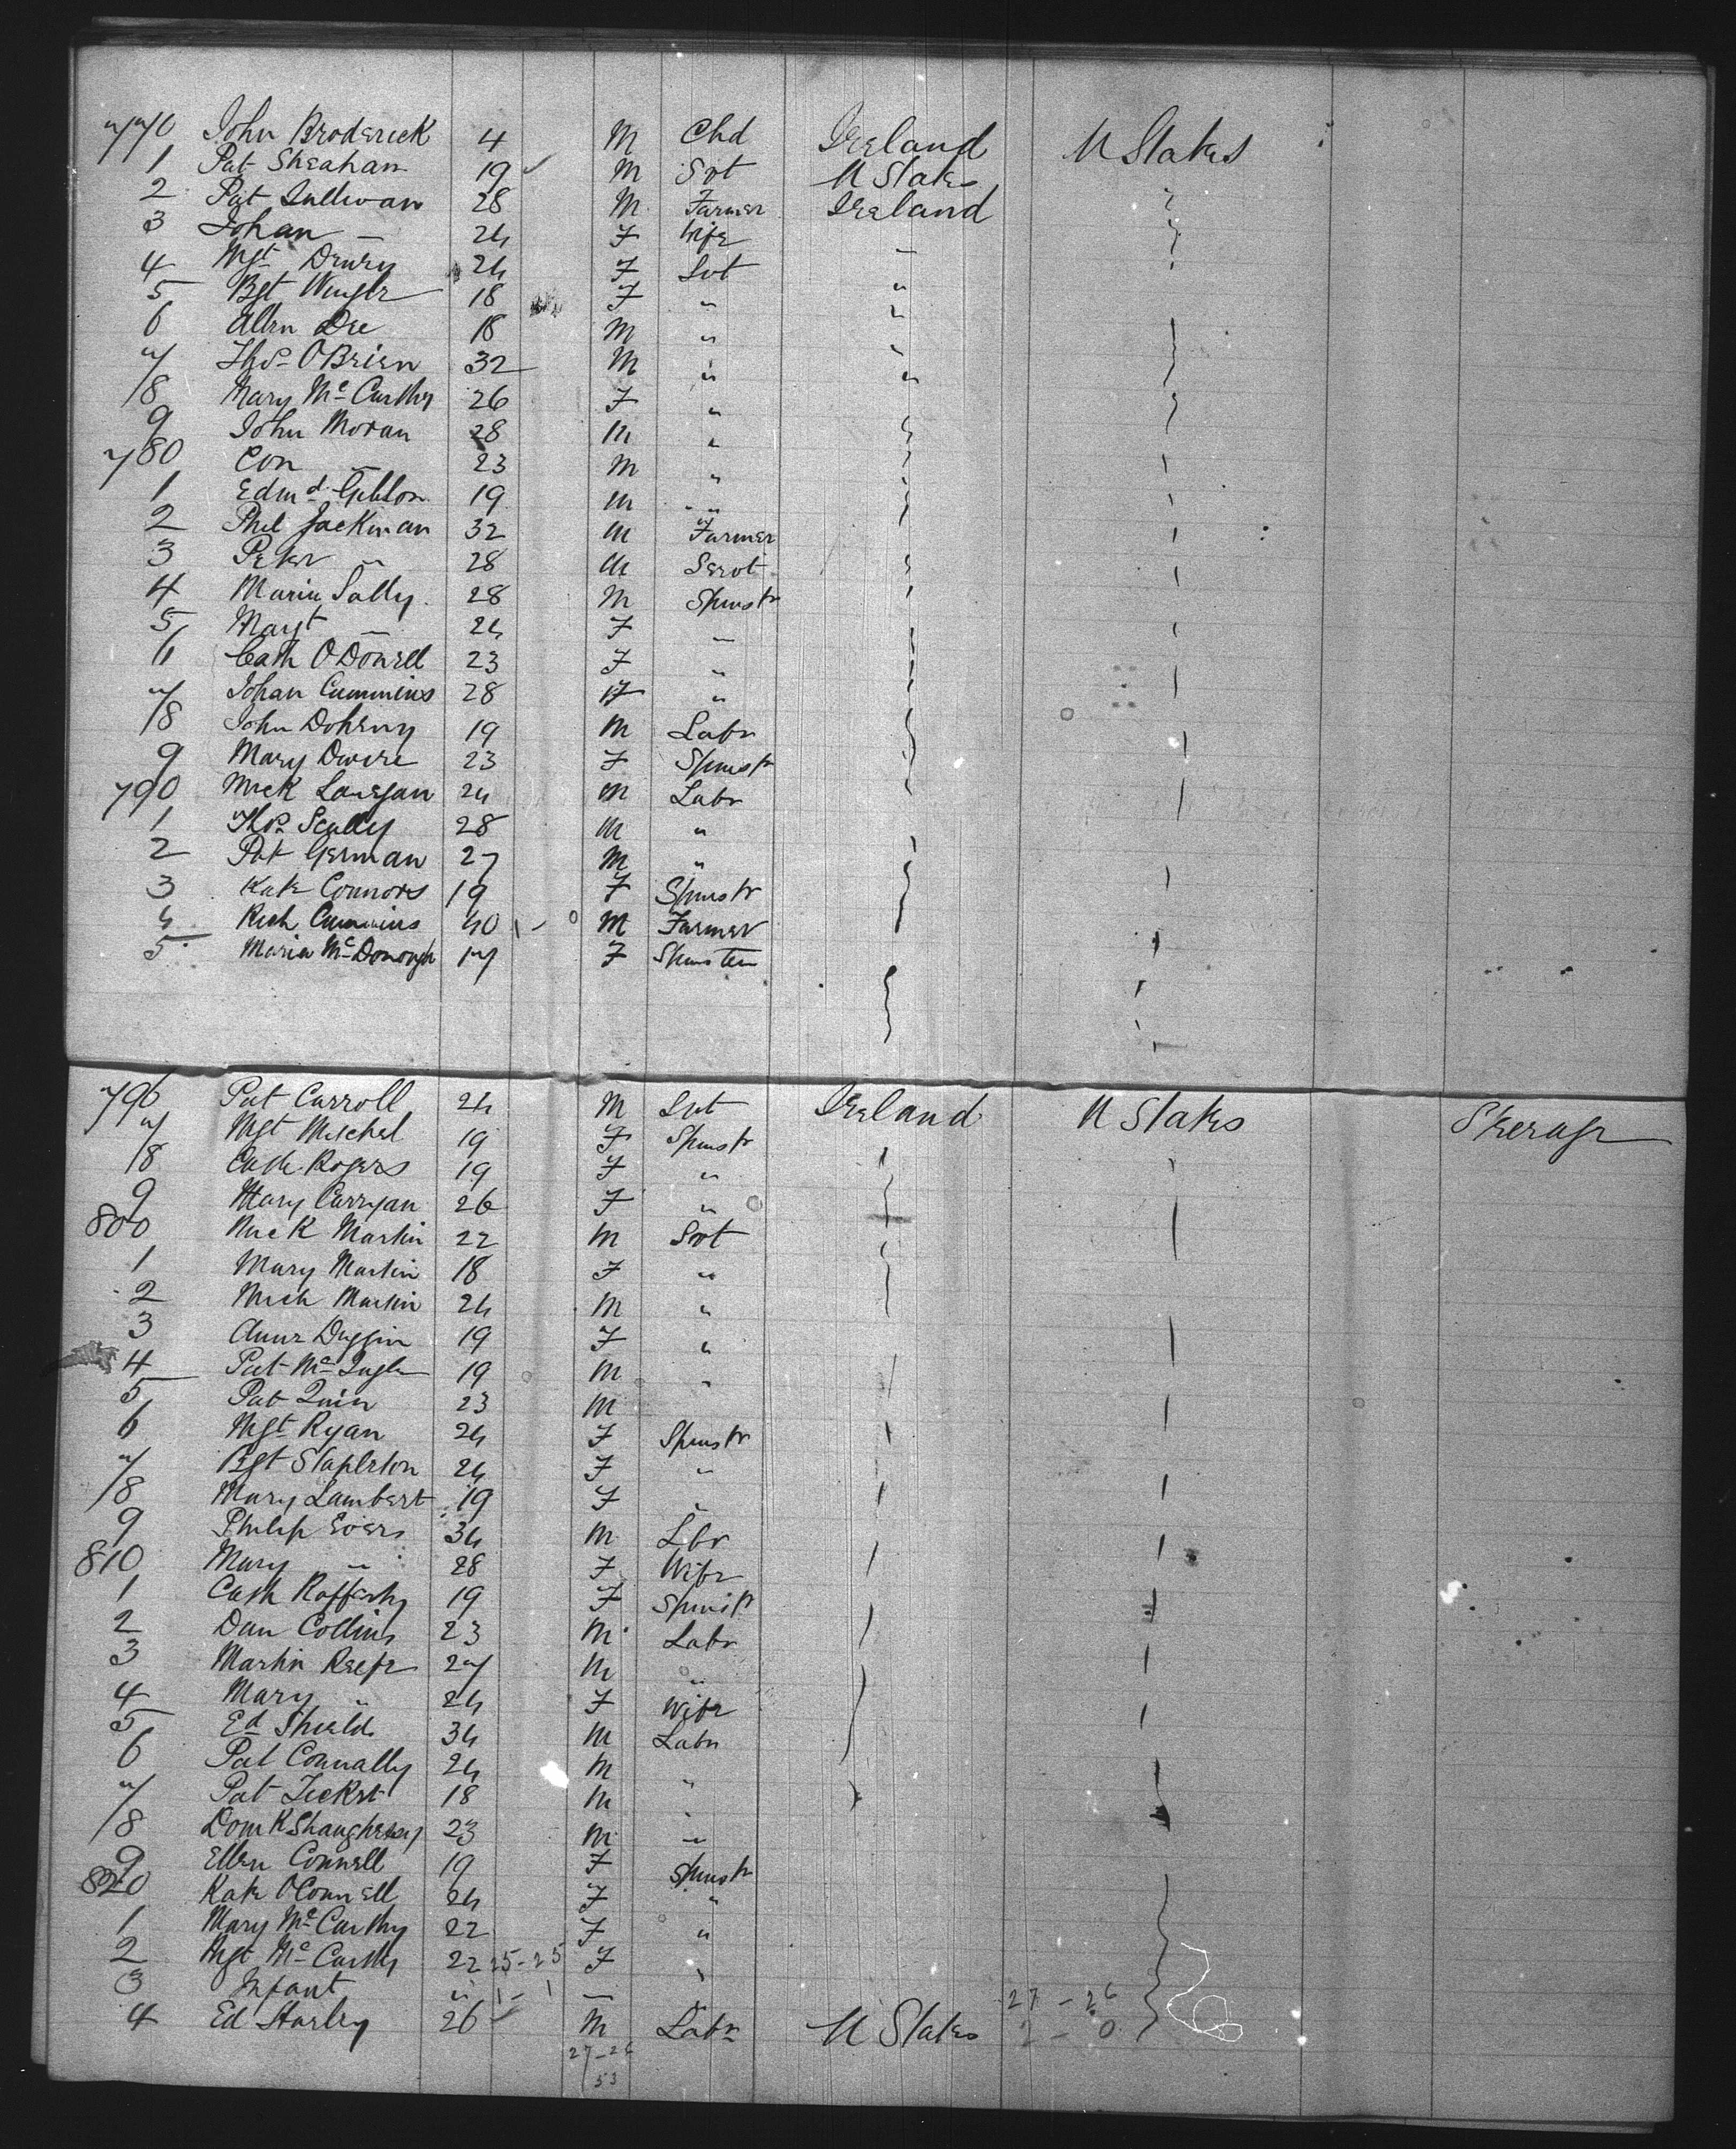 770 John Broderick 4 M Chd Ireland U States
1 Pat Sheahan 19 M Svt U States
2 Pat Sullivan 28 M Farmer Ireland
3 Johan — 24 F Wife —
4 Mgt Drury 24 F Svt "
5 Bgt 18 F " "
6 Allen Dee 18 M " "
7 Thos OBrien 32 M " "
8 Mary Mc Carthy 26 F "
9 John Moran 28 M "
780 Con — 23 M "
1 Edmd Gibbon 19 M "
2 Phil Jackman 32 M Farmer
3 Peter " 28 M Servt
4 Maria Sally 28 M Spinstr
5 Margt — 24 F —
6 Cath ODonell 23 F "
7 Johan Cummins 28 F "
8 John Doheny 19 M Labr
9 Mary Dwire 23 F Spinstr
790 Mick Lanegan 24 M Labr
1 Thos Scully 28 M "
2 Pat German 27 M "
3 Kate Connors 19 F Spinstr
4 Rich Cummins 40 1 - 0 M Farmer
5 Maria McDonough 17 F Spinster
796 Pat Carroll 24 M Svt Ireland U States Steerage
7 Mgt Mitchel 19 F Spinstr
8 Cath Rogers 19 F "
9 Mary Carryan 26 F "
800 Mick Martin 22 M Svt
1 Mary Martin 18 F "
2 Mich Martin 24 M "
3 Anne Duggin 19 F "
4 Pat 19 M "
5 Pat Quin 23 M
6 Mgt Ryan 24 F Spinstr
7 Bgt Stapleton 24 F "
8 Mary Lambert 19 F "
9 Philip Evers 34 M Lbr
810 Mary " 28 F Wife
1 Cath Rafferty 19 F Spinstr
2 Dan Collins 23 M Labr
3 Martin Keefe 27 M "
4 Mary " 24 F Wife
5 Ed Shields 34 M Labr
6 Pat Connally 24 M "
7 Pat 18 M "
8 Domk Shaughnessy 23 M "
9 Ellen Connell 19 F Spinstr
820 Kate OConnell 24 F "
1 Mary McCarthy 22 F "
2 Mgt McCarthy 22 25-25 F "
3 Infant " 1 - 1 —
4 Ed Harley 26 M Labr U States
27 - 26
2 - 0
27-26
53